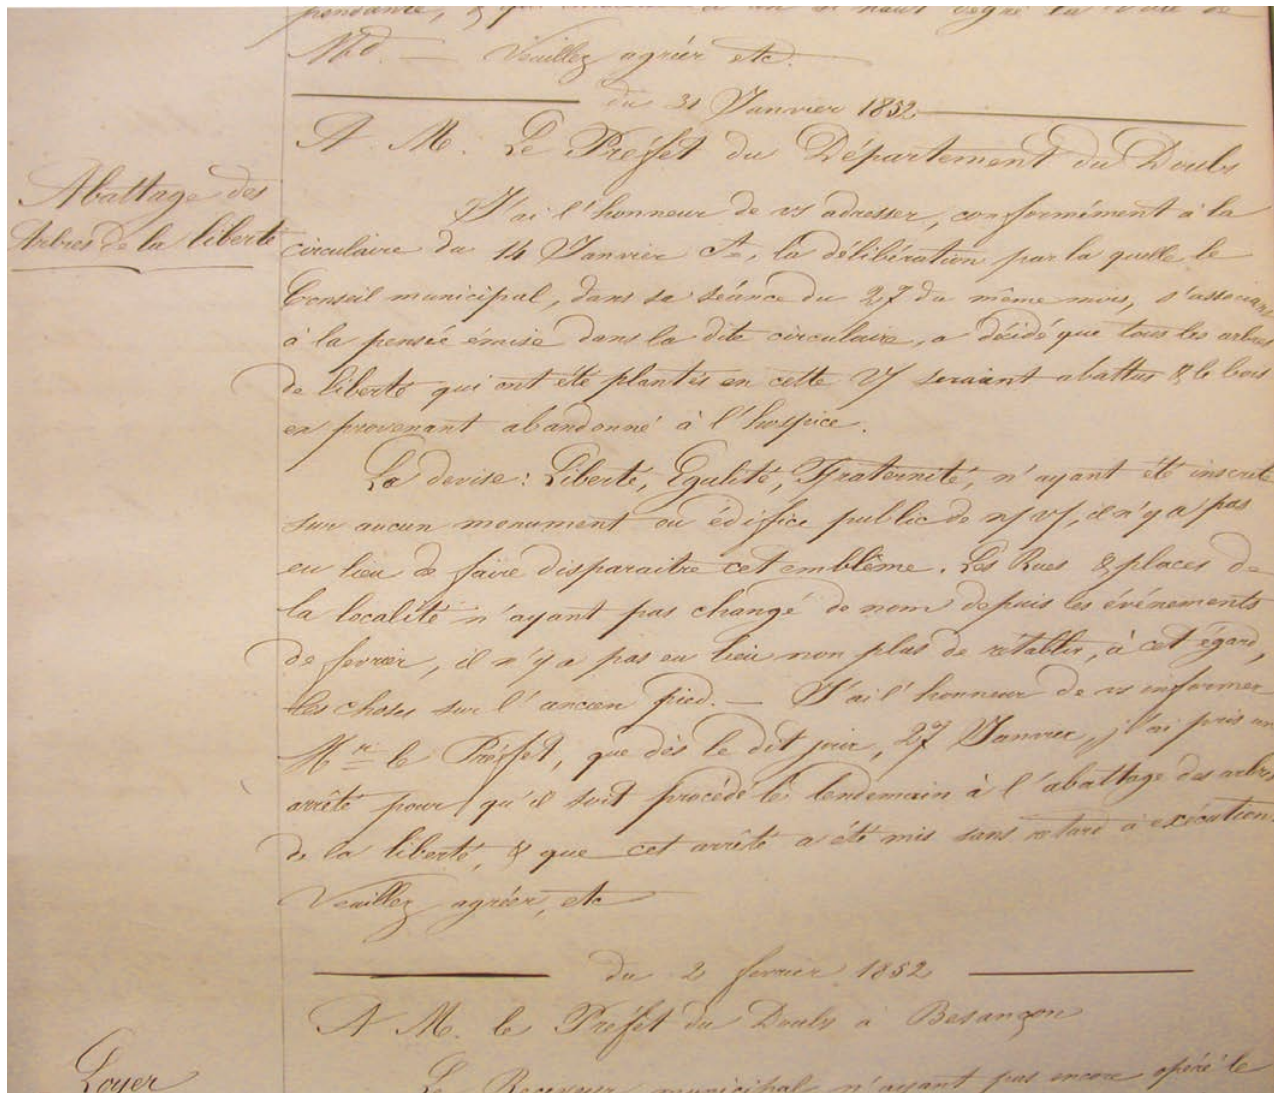 Md. — Veuillez agréer etc.
du 31 Janvier 1852
A M. Le Préfet du Département du Doubs
Abattage des
Arbres de la liberté
J'ai l'honneur de vs adresser, conformément à la
circulaire du 14 Janvier Ct, la délibération par la quelle le
Conseil municipal, dans sa séance du 27 du même mois, s'associant
à la pensée émise dans la dite circulaire, a décidé que tous les arbres
de liberté qui ont été plantés en cette V/ seraient abattus & le bois
en provenant abandonné à l'hospice.
La devise: Liberté, Egalité, Fraternité, n'ayant été inscrite
sur aucun monument ou édifice public de n/ v/, il n'y a pas
eu lieu de faire disparaitre cet emblême. Les Rues & places de
la localité n'ayant pas changé de nom depuis les événements
de fevrier, il n'y a pas eu lieu non plus de rétablir, à cet égard,
les choses sur l'ancien pied. — J'ai l'honneur de vs informer
Mr le Préfet, que dès le dit jour, 27 Janvier, j'ai pris un
arrêté pour qu'il soit procédé le lendemain à l'abattage des arbres
de la liberté, & que cet arrêté a été mis sans retard à exécution.
Veuillez agréer, etc
du 2 fevrier 1852
A M. le Préfet du Doubs à Besançon
Loyer
Le Receveur municipal n'ayant pas encore opéré le